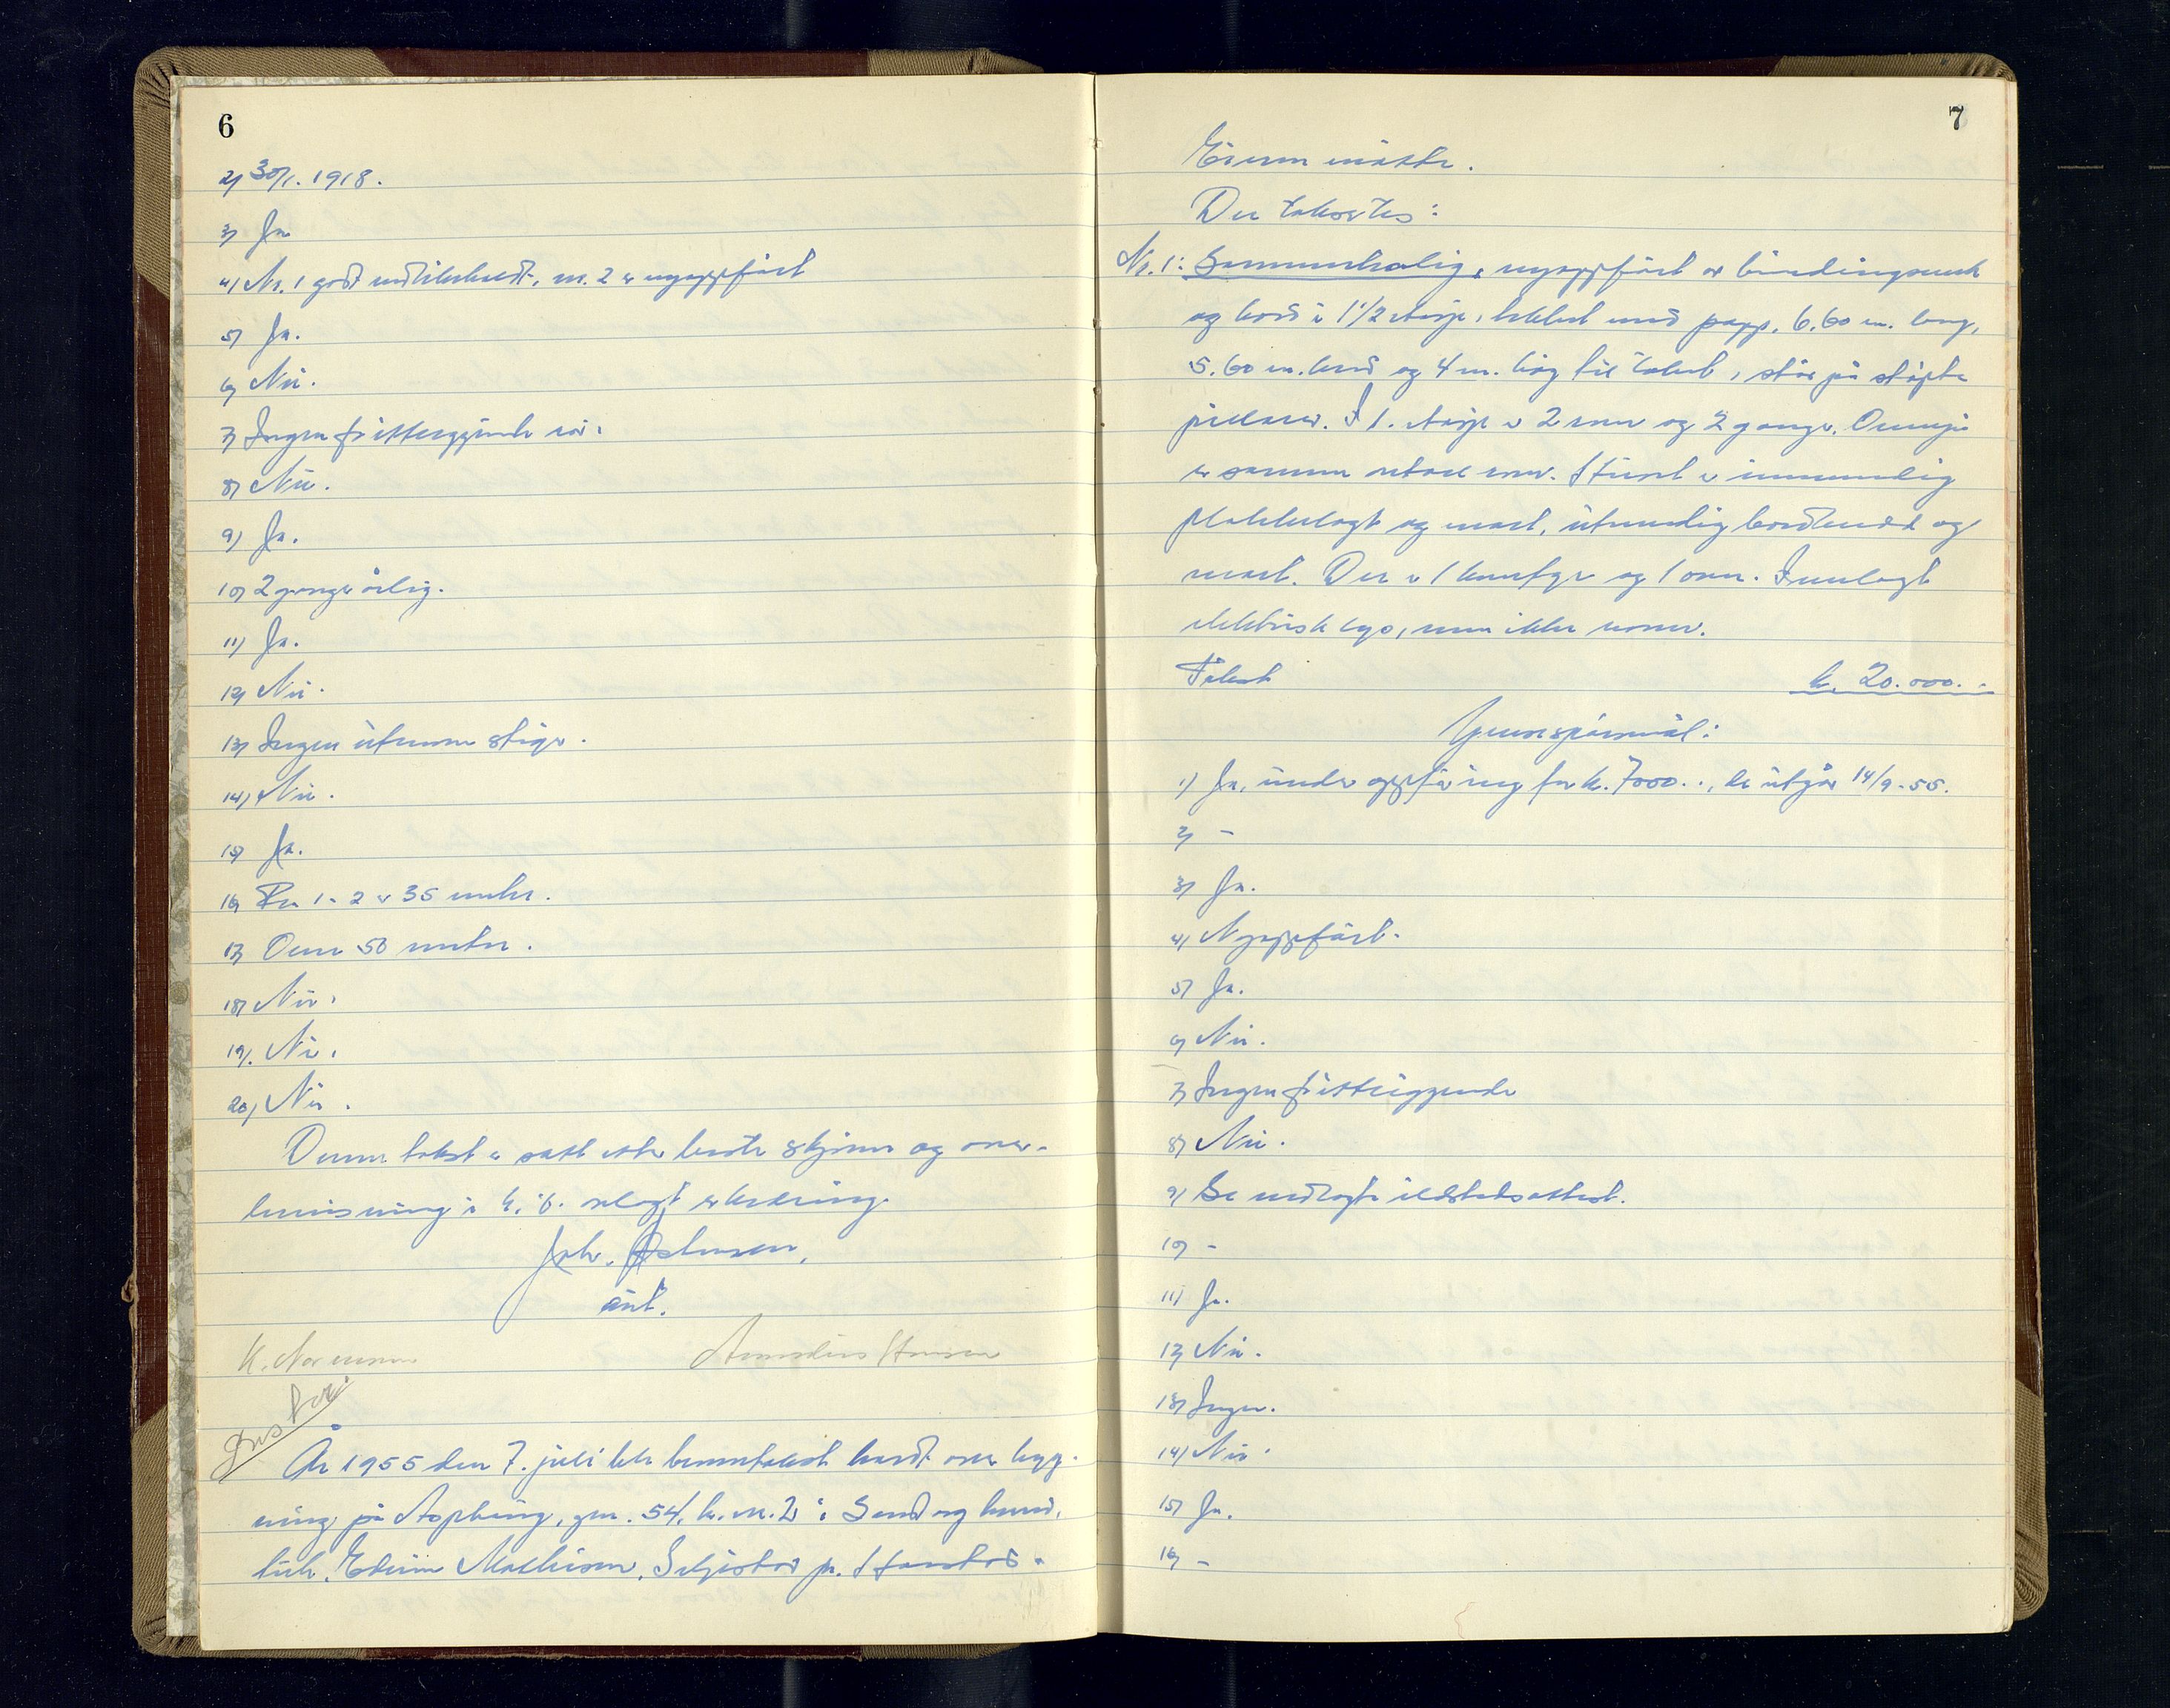 6
2) 30/1. 1918.
3) Ja
4) Nr. 1 godt vedlikeholdt, nr. 2 er nyoppført
5) Ja.
6) Nei.
7) Ingen frittliggende rør.
8) Nei.
9) Ja.
10) 2 ganger årlig.
11) Ja.
12) Nei.
13) Ingen utenom stiger.
14) Nei.
15) Ja.
16) Fra 1 - 2 er 35 meter.
17) Over 50 meter.
18) Nei.
19). Nei.
20) Nei.
Denne takst er satt etter beste skjønn og over-
bevisning i h. t. avlagt erklæring.
Joh.
K. Normann Amandus Hansen
År 1955 den 7. juli ble branntakst holdt over byg-
ning på Aspheim, gnr. 54, br. nr. 2 i Sand og brand.
Edvin Mathisen, Seljestad pr. Harstad.
7
Eieren møtte.
Der takseres:
Nr. 1: Sommerbolig, nyoppført av bindingsverk
og bord i 1 1/2 etasje, tekket med papp, 6.60 m. lang,
5.60 m. bred og 4 m. høg til taket, står på støpte
pillarer. I 1. etasje er 2 rom og 2 ganger. Ovenpå
er samme antall rom. Huset er innvendig
platekledt og malt, utvendig bordkledd og
malt. Der er 1 komfyr og 1 ovn. Innlagt
elektrisk lys, men ikke vann.
Takst kr. 20.000.-
Grunnspørsmål:
1) Ja, under oppføring for kr. 7000.-, de utgår 14/9-55.
2) -
3) Ja.
4) Nyoppført.
5) Ja.
6) Nei.
7) Ingen frittliggende
8) Nei.
9) Se vedlagte ildstedsattest.
10) -
11) Ja.
12) Nei.
13) Ingen.
14) Nei.
15) Ja.
16) -